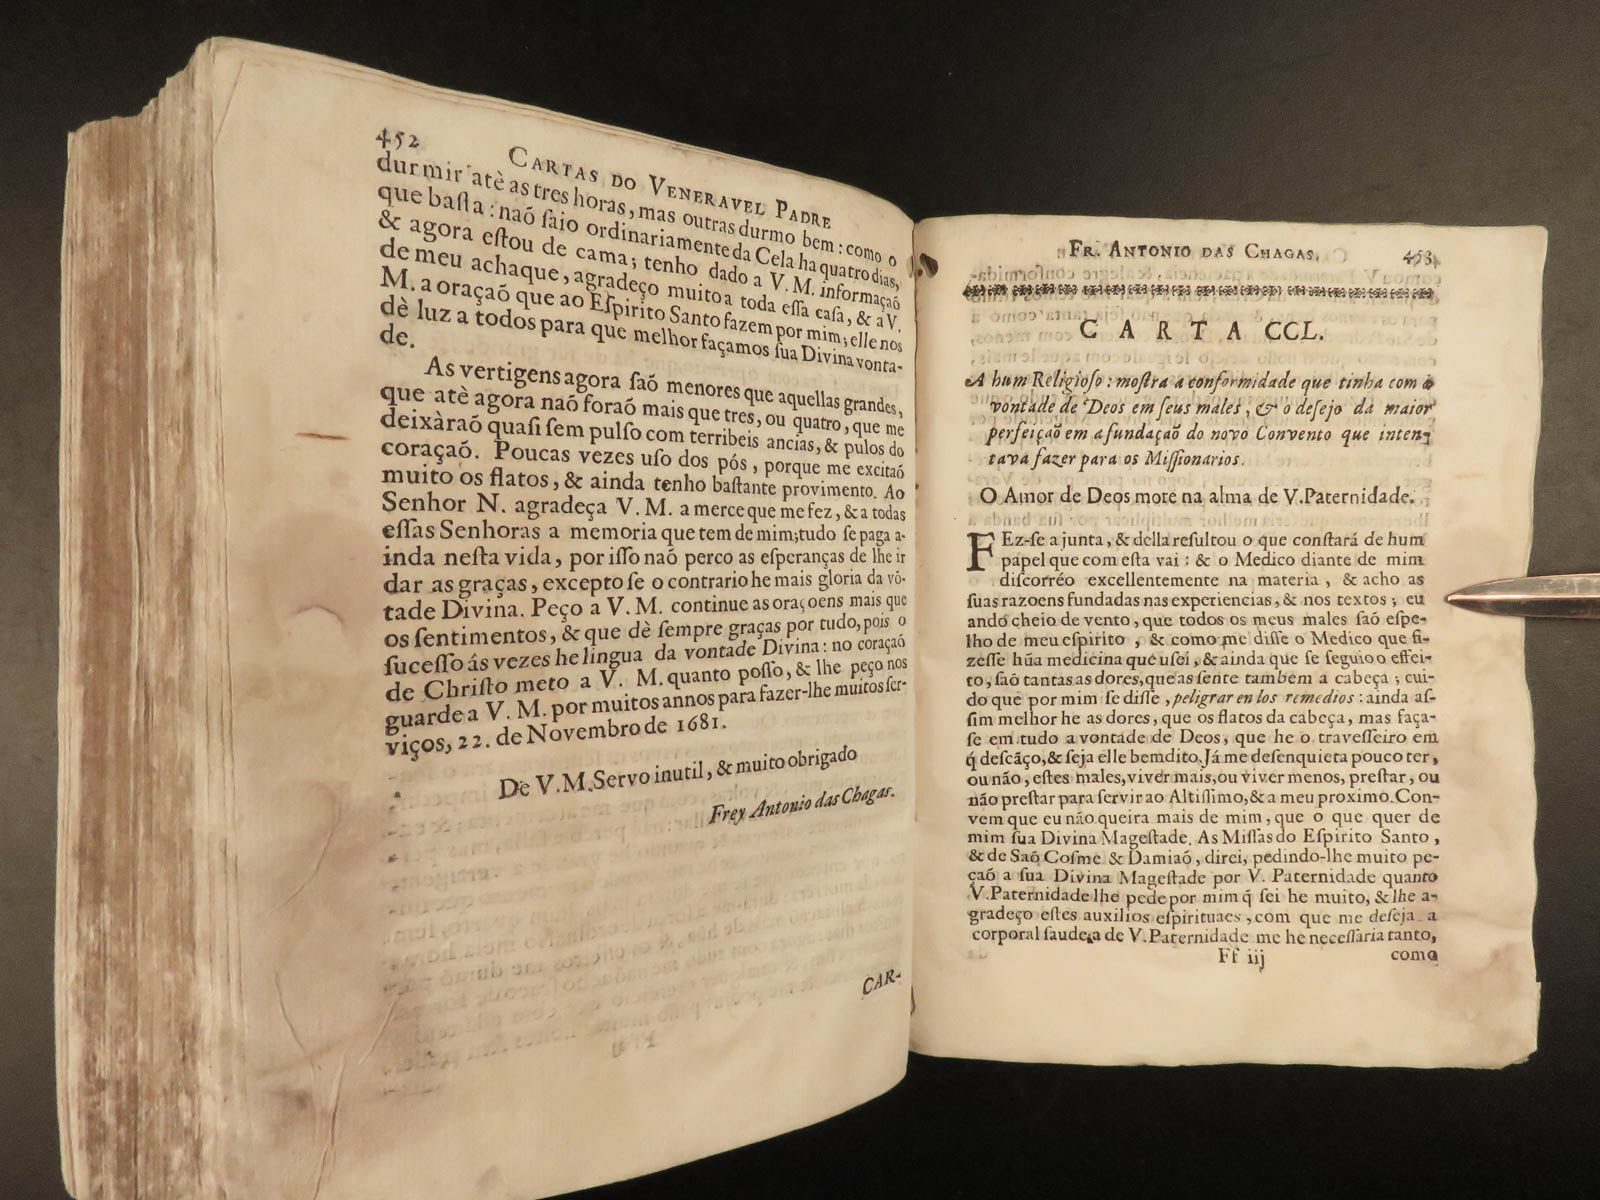 452
CARTAS DO VENERAVEL PADRE
durmir atè as tres horas, mas outras durmo bem: como o
que baſta: naõ ſaio ordinariamente da Cela ha quatro dias,
& agora eſtou de cama; tenho dado a V. M. informaçaõ
de meu achaque, agradeço muito a toda eſſa caſa, & a V.
M. a oraçaõ que ao Eſpirito Santo fazem por mim; elle nos
dè luz a todos para que melhor façamos ſua Divina vonta-
de.
As vertigens agora ſaõ menores que aquellas grandes,
que atè agora naõ foraõ mais que tres, ou quatro, que me
deixàraõ quaſi ſem pulſo com terribeis ancias, & pulos do
coraçaõ. Poucas vezes uſo dos pós, porque me excitaõ
muito os flatos, & ainda tenho baſtante provimento. Ao
Senhor N. agradeça V. M. a merce que me fez, & a todas
eſſas Senhoras a memoria que tem de mim; tudo ſe paga a-
inda neſta vida, por iſſo naõ perco as eſperanças de lhe ir
dar as graças, excepto ſe o contrario he mais gloria da võ-
tade Divina. Peço a V. M. continue as oraçoens mais que
os ſentimentos, & que dè ſempre graças por tudo, pois o
ſuceſſo ás vezes he lingua da vontade Divina: no coraçaõ
de Chriſto meto a V. M. quanto poſſo, & lhe peço nos
guarde a V. M. por muitos annos para fazer-lhe muitos ſer-
viços, 22. de Novembro de 1681.
De V. M. Servo inutil, & muito obrigado
Frey Antonio das Chagas.
CAR-
FR. ANTONIO DAS CHAGAS.
453
CARTA CCL.
A hum Religioſo: moſtra a conformidade que tinha com a
vontade de Deos em ſeus males, & o deſejo da maior
perfeiçaõ em a fundaçaõ do novo Convento que inten-
tava fazer para os Miſſionarios.
O Amor de Deos more na alma de V. Paternidade.
FEz-ſe a junta, & della reſultou o que conſtará de hum
papel que com eſta vai: & o Medico diante de mim
diſcorréo excellentemente na materia, & acho as
ſuas razoens fundadas nas experiencias, & nos textos; eu
ando cheio de vento, que todos os meus males ſaõ eſpe-
lho de meu eſpirito, & como me diſſe o Medico que fi-
zeſſe hũa medicina que uſei, & ainda que ſe ſeguio o effei-
to, ſaõ tantas as dores, que as ſente tambem a cabeça; cui-
do que por mim ſe diſſe, peligrar en los remedios: ainda aſ-
ſim melhor he as dores, que os flatos da cabeça, mas faça-
ſe em tudo a vontade de Deos, que he o traveſſeiro em
q̃ deſcãço, & ſeja elle bemdito. Já me deſenquieta pouco ter,
ou não, eſtes males, viver mais, ou viver menos, preſtar, ou
não preſtar para ſervir ao Altiſſimo, & a meu proximo. Con-
vem que eu não queira mais de mim, que o que quer de
mim ſua Divina Mageſtade. As Miſſas do Eſpirito Santo,
& de Saõ Coſme & Damiaõ, direi, pedindo-lhe muito pe-
çaõ a ſua Divina Mageſtade por V. Paternidade quanto
V. Paternidade lhe pede por mim q̃ ſei he muito, & lhe a-
gradeço eſtes auxilios eſpirituaes, com que me deſeja a
corporal ſaude, a de V. Paternidade me he neceſſaria tanto,
Ff iij
como